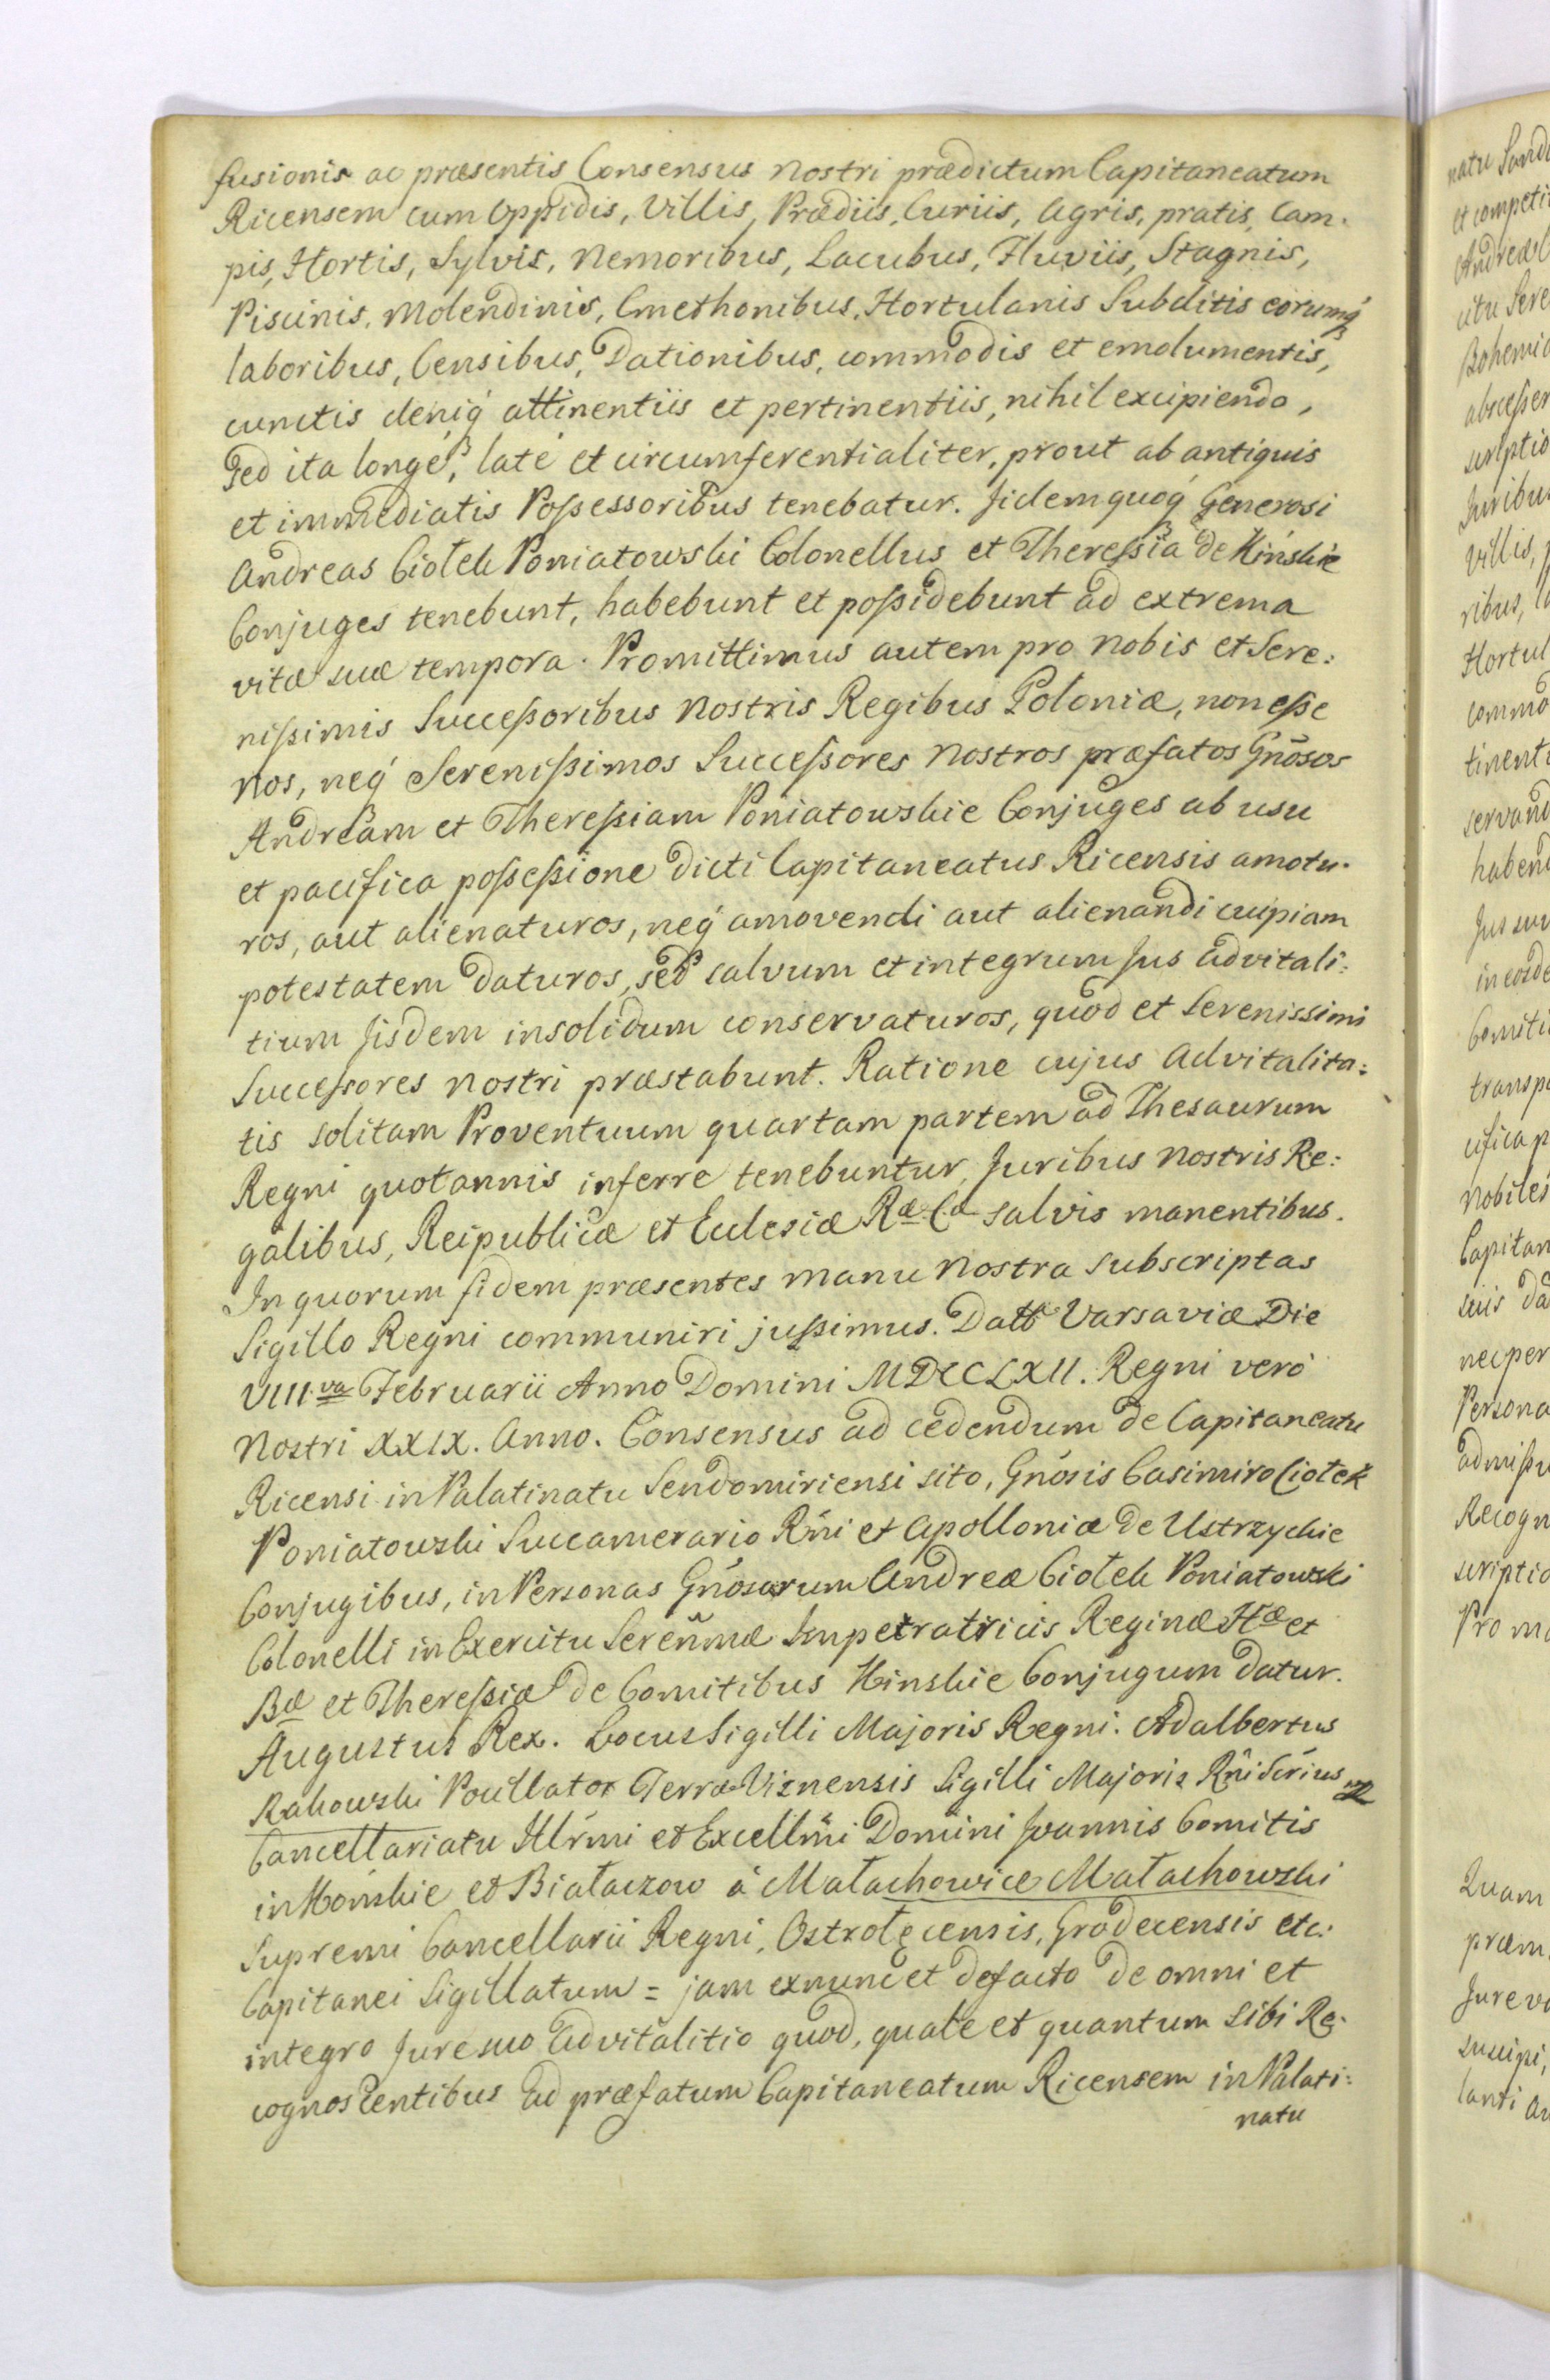 fusionis ac præsentis Consensus nostri prædictum Capitaneatum
Ricensem cum Oppidis, Villis, Prædiis, Curiis, Agris, pratis, Cam-
pis, Hortis, Sylvis, Nemoribus, Lacubus, Fluviis, Stagnis,
Piscinis, Molendinis, Cmethonibus, Hortulanis Subditis eorumq́
laboribus, Censibus, Dationibus, commodis et emolumentis,
cunctis deniq́ attinentiis et pertinentiis, nihil excipiendo,
Sed ita longé, laté et circumferentialiter, prout ab antiquis
et immediatis Possessoribus tenebatur. Iidem quoq́ Generosi
Andreas Ciołek Poniatowski Colonellus et Theressia de Kińskie
Conjuges tenebunt, habebunt et possidebunt ad extrema
vitæ suæ tempora. Promittimus autem pro nobis et Sere:
nissimis Successoribus Nostris Regibus Poloniæ, non esse
Nos, neq́ Serenissimos Successores Nostros præfatos Gñosos
Andream et Theressiam Poniatowskie Conjuges ab usu
et pacifica possessione dicti Capitaneatus Ricensis amotu-
ros, aut alienaturos, neq́ amovendi aut alienandi cuipiam
potestatem daturos, sed salvum et integrum Jus advitali:
tium Iisdem insolidum conservaturos, quod et Serenissimi
Successores nostri præstabunt. Ratione cujus Advitalita:
tis solitam Proventuum quartam partem ad Thesaurum
Regni quotannis inferre tenebuntur, Juribus nostris Re:
galibus, Reipublicæ et Eclesiæ Ræ Cæ salvis manentibus.
In quorum fidem præsentes manu Nostra subscriptas
Sigillo Regni communiri jussimus. Datt Varsaviæ Die
VIII.va Februarii Anno Domini MDCCLXII. Regni verò
Nostri XXIX. Anno. Consensus ad cedendum de Capitaneatu
Ricensi in Palatinatu Sendomiriensi sito, Gñosis Casimiro Ciołek
Poniatowski Succamerario Rñi et Apolloniæ de Ustrzyckie
Conjugibus, in Personas Gñosorum Andreæ Ciołek Poniatowski
Colonelli in Exercitu Sereñmæ Impetratricis Reginæ Hæ et
Bæ et Theressiæ de Comitibus Kinskie Conjugum datur.
Augustus Rex. Locus Sigilli Majoris Regni. Adalbertus
Rakowski Pocillator Terræ Viznensis Sigilli Majoris Rñi Sc̃rius mp
Cancellariatu Illr̃mi et Excellm̃i Domini Joannis Comitis
in Końskie et Białaczow à Małachowice Małachowski
Supremi Cancellarii Regni, Ostrołęcensis, Grodecensis etc:
Capitanei Sigillatum = jam exnunc et defacto de omni et
integro Jure suo Advitalitio quod, quale et quantum sibi Re-
cognoscentibus Ad præfatum Capitaneatum Ricensem in Palati:
natu
natu
et competi
Andreæ C
citu Sere
Bohemiæ
abscesser
scriptio
Juribus
Villis,
ribus,
Hortul
commo
tinenti
servand
habend
Jus suu
in eosde
Comiti
transp
cifica p
Nobiles
Capitan
suis da
nec per
Persona
admissu
Recogn
scriptio
Pro m
Quam
præm
Jure v
suscipi,
lanti